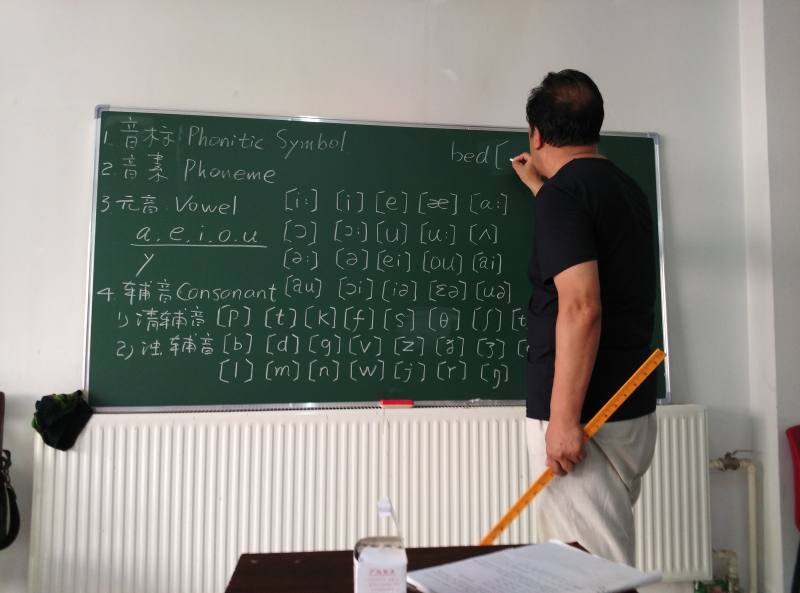 1. 音标 Phonitic Symbol
bed [
2. 音素 Phoneme
3 元音 Vowel [i:] [i] [e] [æ] [a:]
a.e.i.o.u [ɔ] [ɔ:] [u] [u:] [ʌ]
y [ə:] [ə] [ei] [ou] [ai]
4. 辅音 Consonant [au] [ɔi] [iə] [ɛə] [uə]
1) 清辅音 [p] [t] [k] [f] [s] [θ] [ʃ] [t
2) 浊辅音 [b] [d] [g] [v] [z] [ð] [ʒ] [
[l] [m] [n] [w] [j] [r] [ŋ]